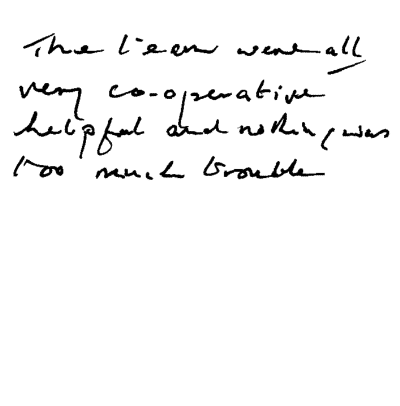 The team were all
very co-operative
helpful and nothing was
too much trouble